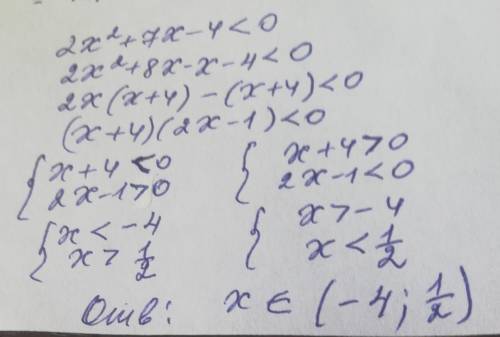 2x²+7x-4<0
2x²+8x-x-4<0
2x(x+4)-(x+4)<0
(x+4)(2x-1)<0
{ x+4<0 { x+4>0
2x-1>0 2x-1<0
{ x<-4 { x>-4
x>1/2 x<1/2
Отв: x∈(-4; 1/2)